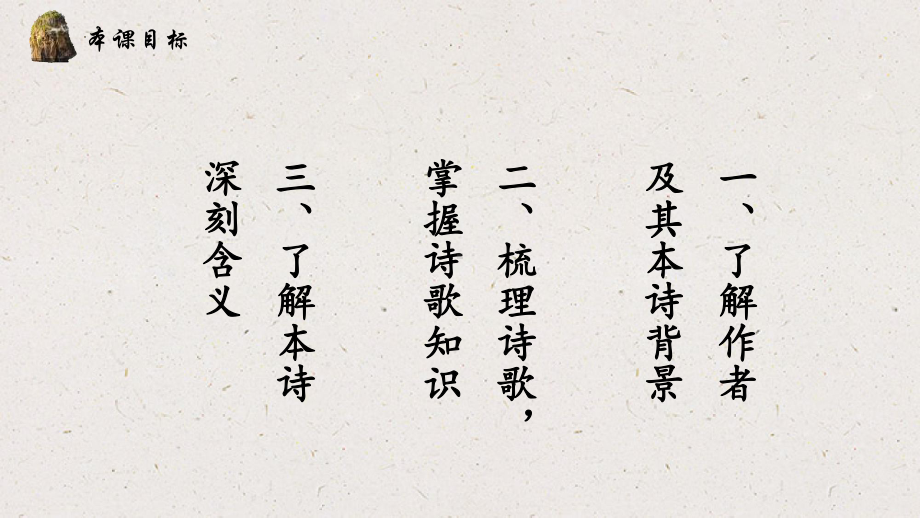 本课目标
一、了解作者
及其本诗背景
二、梳理诗歌，
掌握诗歌知识
三、了解本诗
深刻含义